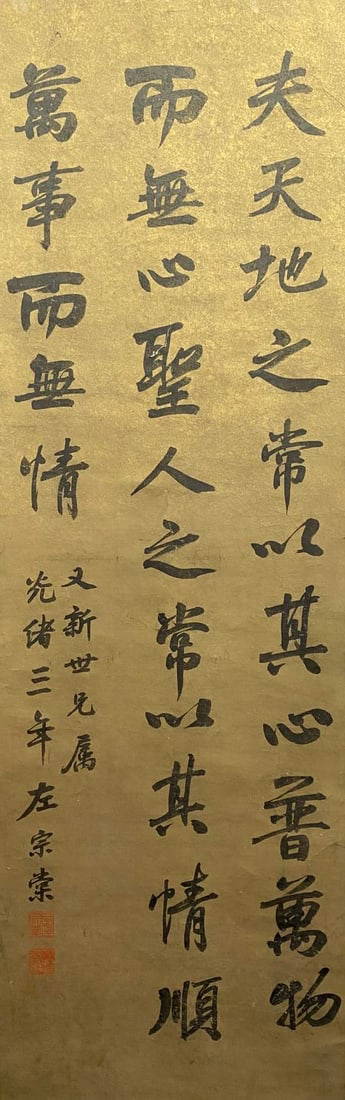 夫天地之常以其心普萬物
而無心聖人之常以其情順
萬事而無情
又新世兄属
光緒三年左宗棠